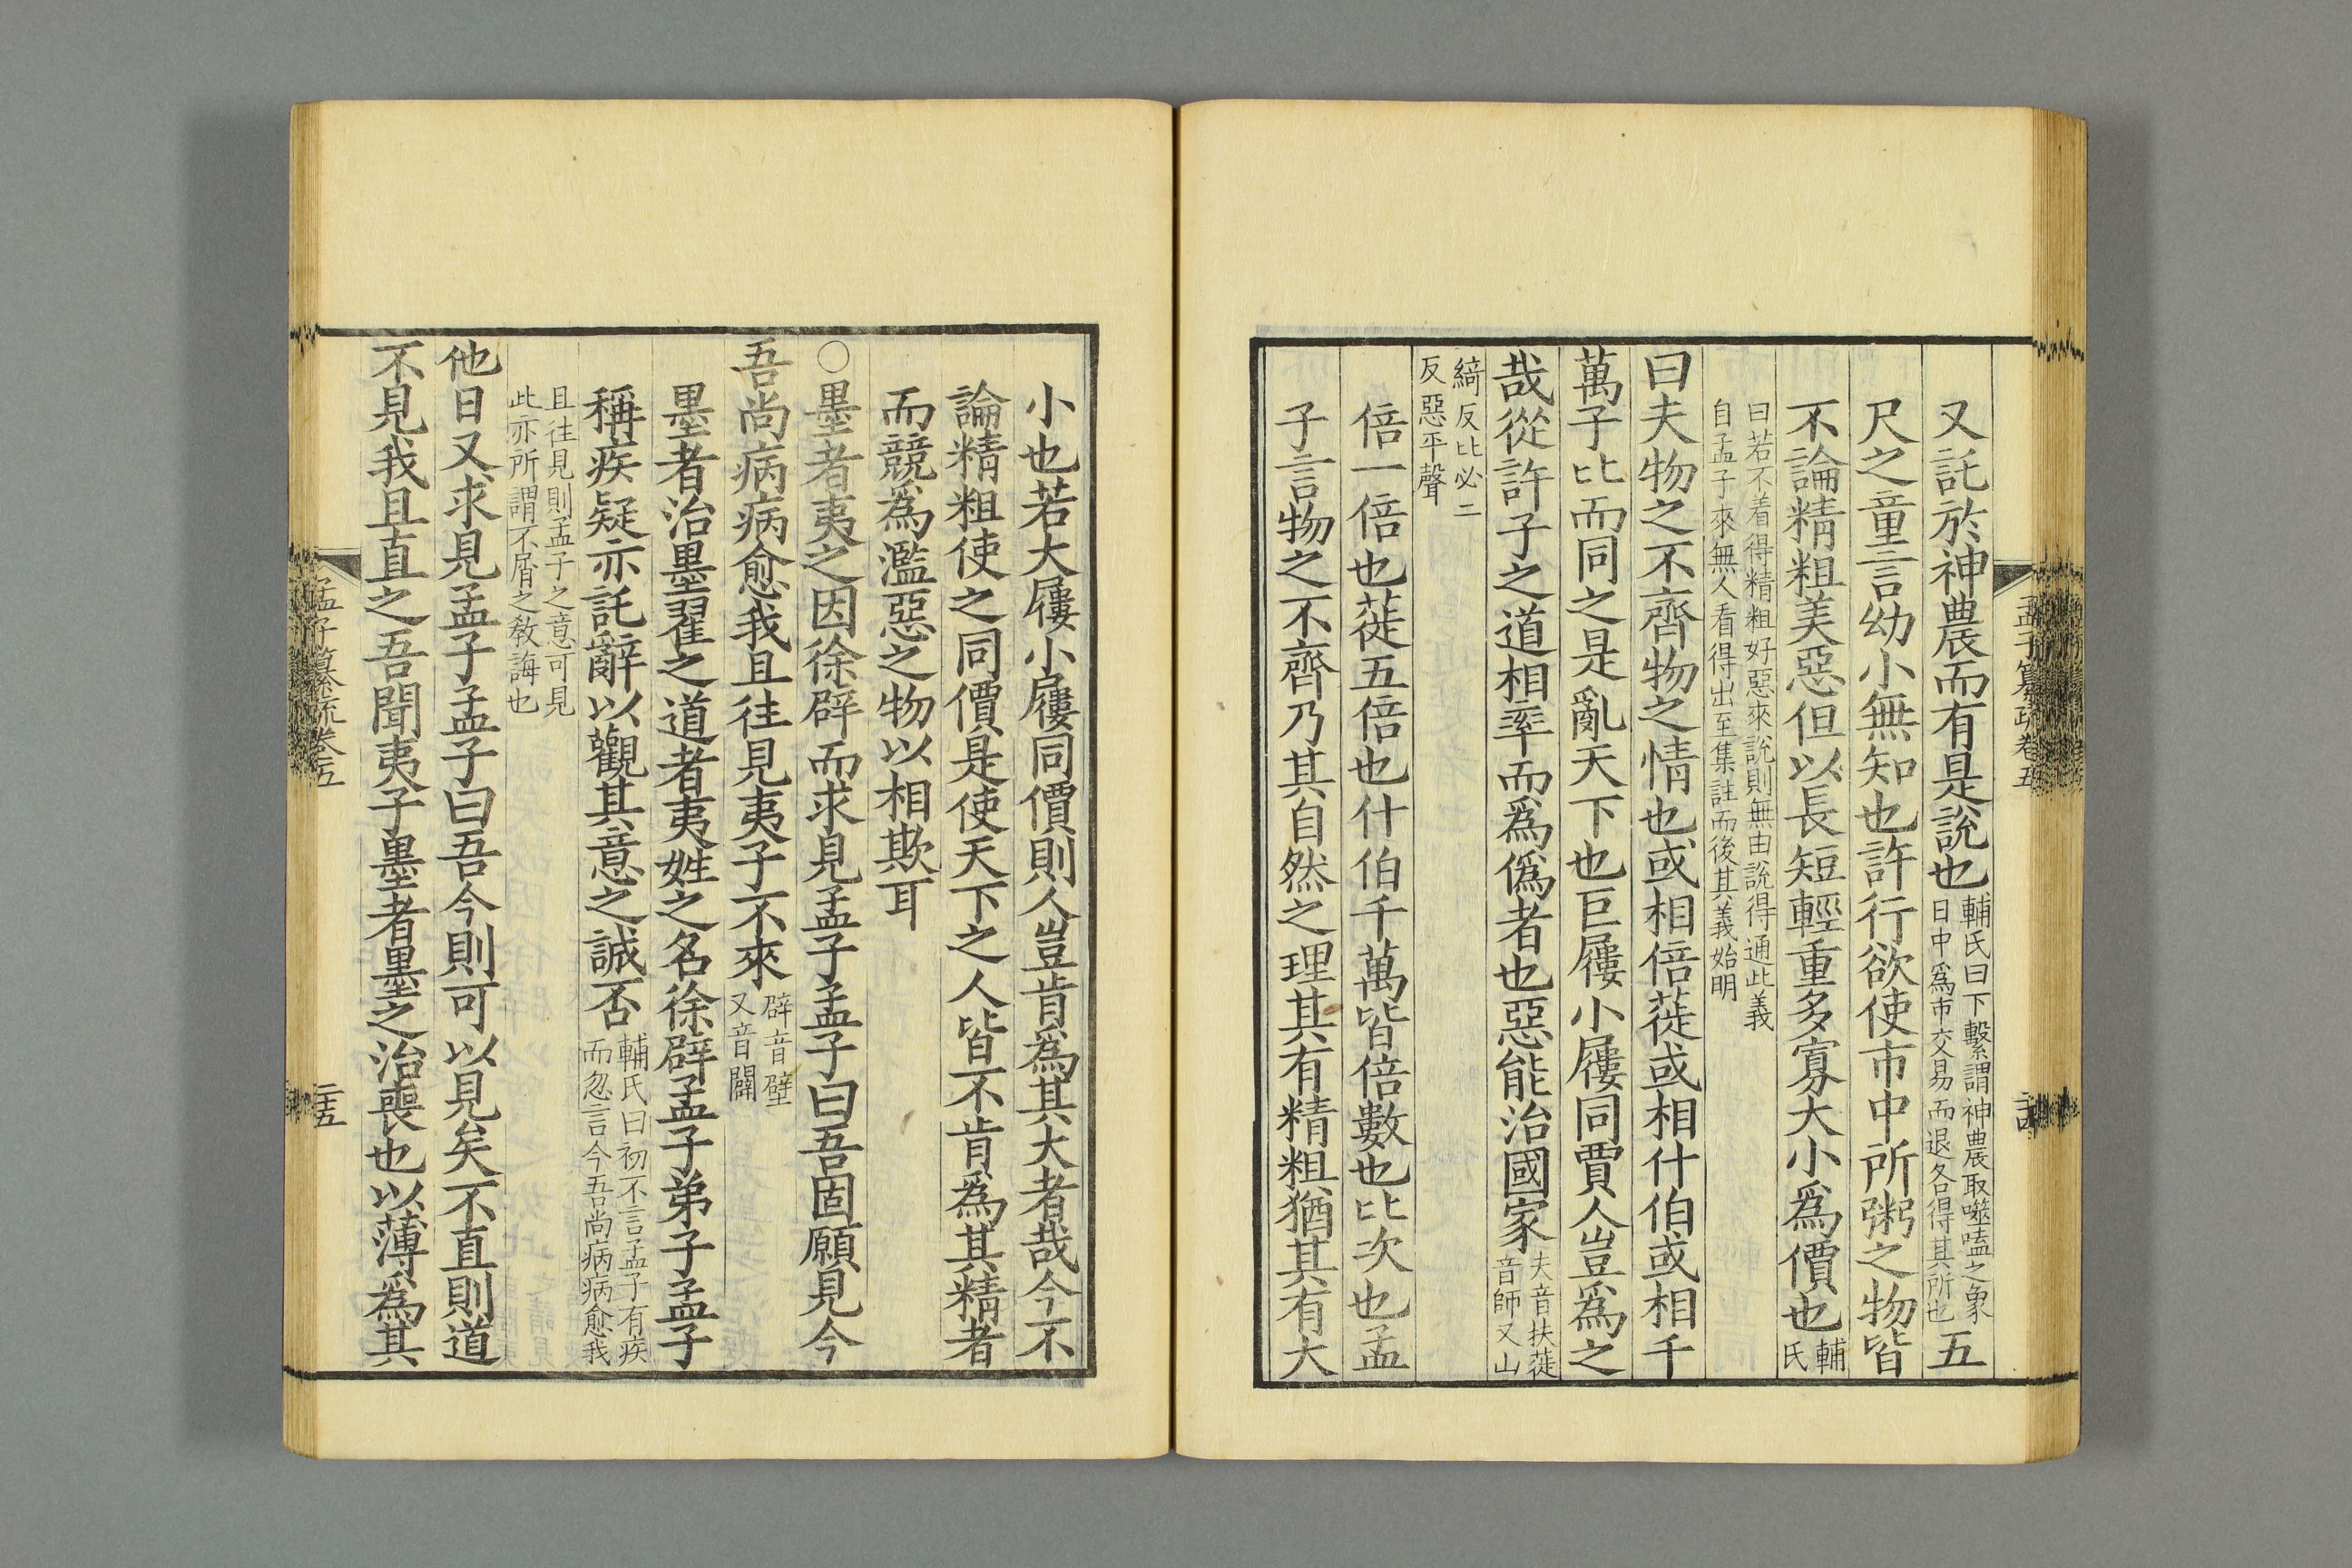 孟子纂疏卷五
又託於神農而有是說也輔氏曰下繫謂神農取噬嗑之象日中爲市交易而退各得其所也五
尺之童言幼小無知也許行欲使市中所粥之物皆
不論精粗美惡但以長短輕重多寡大小爲價也輔氏
曰若不着得精粗好惡來說則無由說得通此義自孟子來無人看得出至集註而後其義始明
曰夫物之不齊物之情也或相倍蓰或相什伯或相千
萬子比而同之是亂天下也巨屨小屨同賈人豈爲之
哉從許子之道相率而爲僞者也惡能治國家夫音扶蓰音師又山
綺反比必二反惡平聲
倍一倍也蓰五倍也什伯千萬皆倍數也比次也孟
子言物之不齊乃其自然之理其有精粗猶其有大
小也若大屨小屨同價則人豈肯爲其大者哉今不
論精粗使之同價是使天下之人皆不肯爲其精者
而競爲濫惡之物以相欺耳
○墨者夷之因徐辟而求見孟子孟子曰吾固願見今
吾尚病病愈我且往見夷子不來辟音壁又音闢
墨者治墨翟之道者夷姓之名徐辟孟子弟子孟子
稱疾疑亦託辭以觀其意之誠否輔氏曰初不言孟子有疾而忽言今吾尚病病愈我
且往見則孟子之意可見此亦所謂不屑之敎誨也
他日又求見孟子孟子曰吾今則可以見矣不直則道
不見我且直之吾聞夷子墨者墨之治喪也以薄爲其
孟子纂疏卷五
二十五